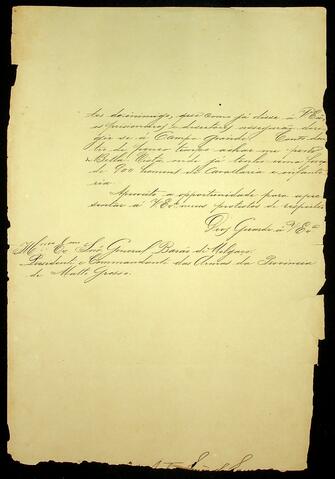 tes do inimigo, que como já disse á V Ex.ª
os prisioneiros e desertores asseguram diri
gir-se á Campo Grande. Conto den
tro de pouco tempo achar-me perto
Bella Vista onde já tenho uma força
de 900 homens de cavallaria e infanta
ria.
Aproveito a opportunidade para apre
sentar a V Ex.ª meus protestos de respeito.
Deos Guarde a V Ex.ª
Ill.mo Ex.mo Snr General Barão de Melgaço
Presidente e Commandante das Armas da Provincia
de Matto Grosso.